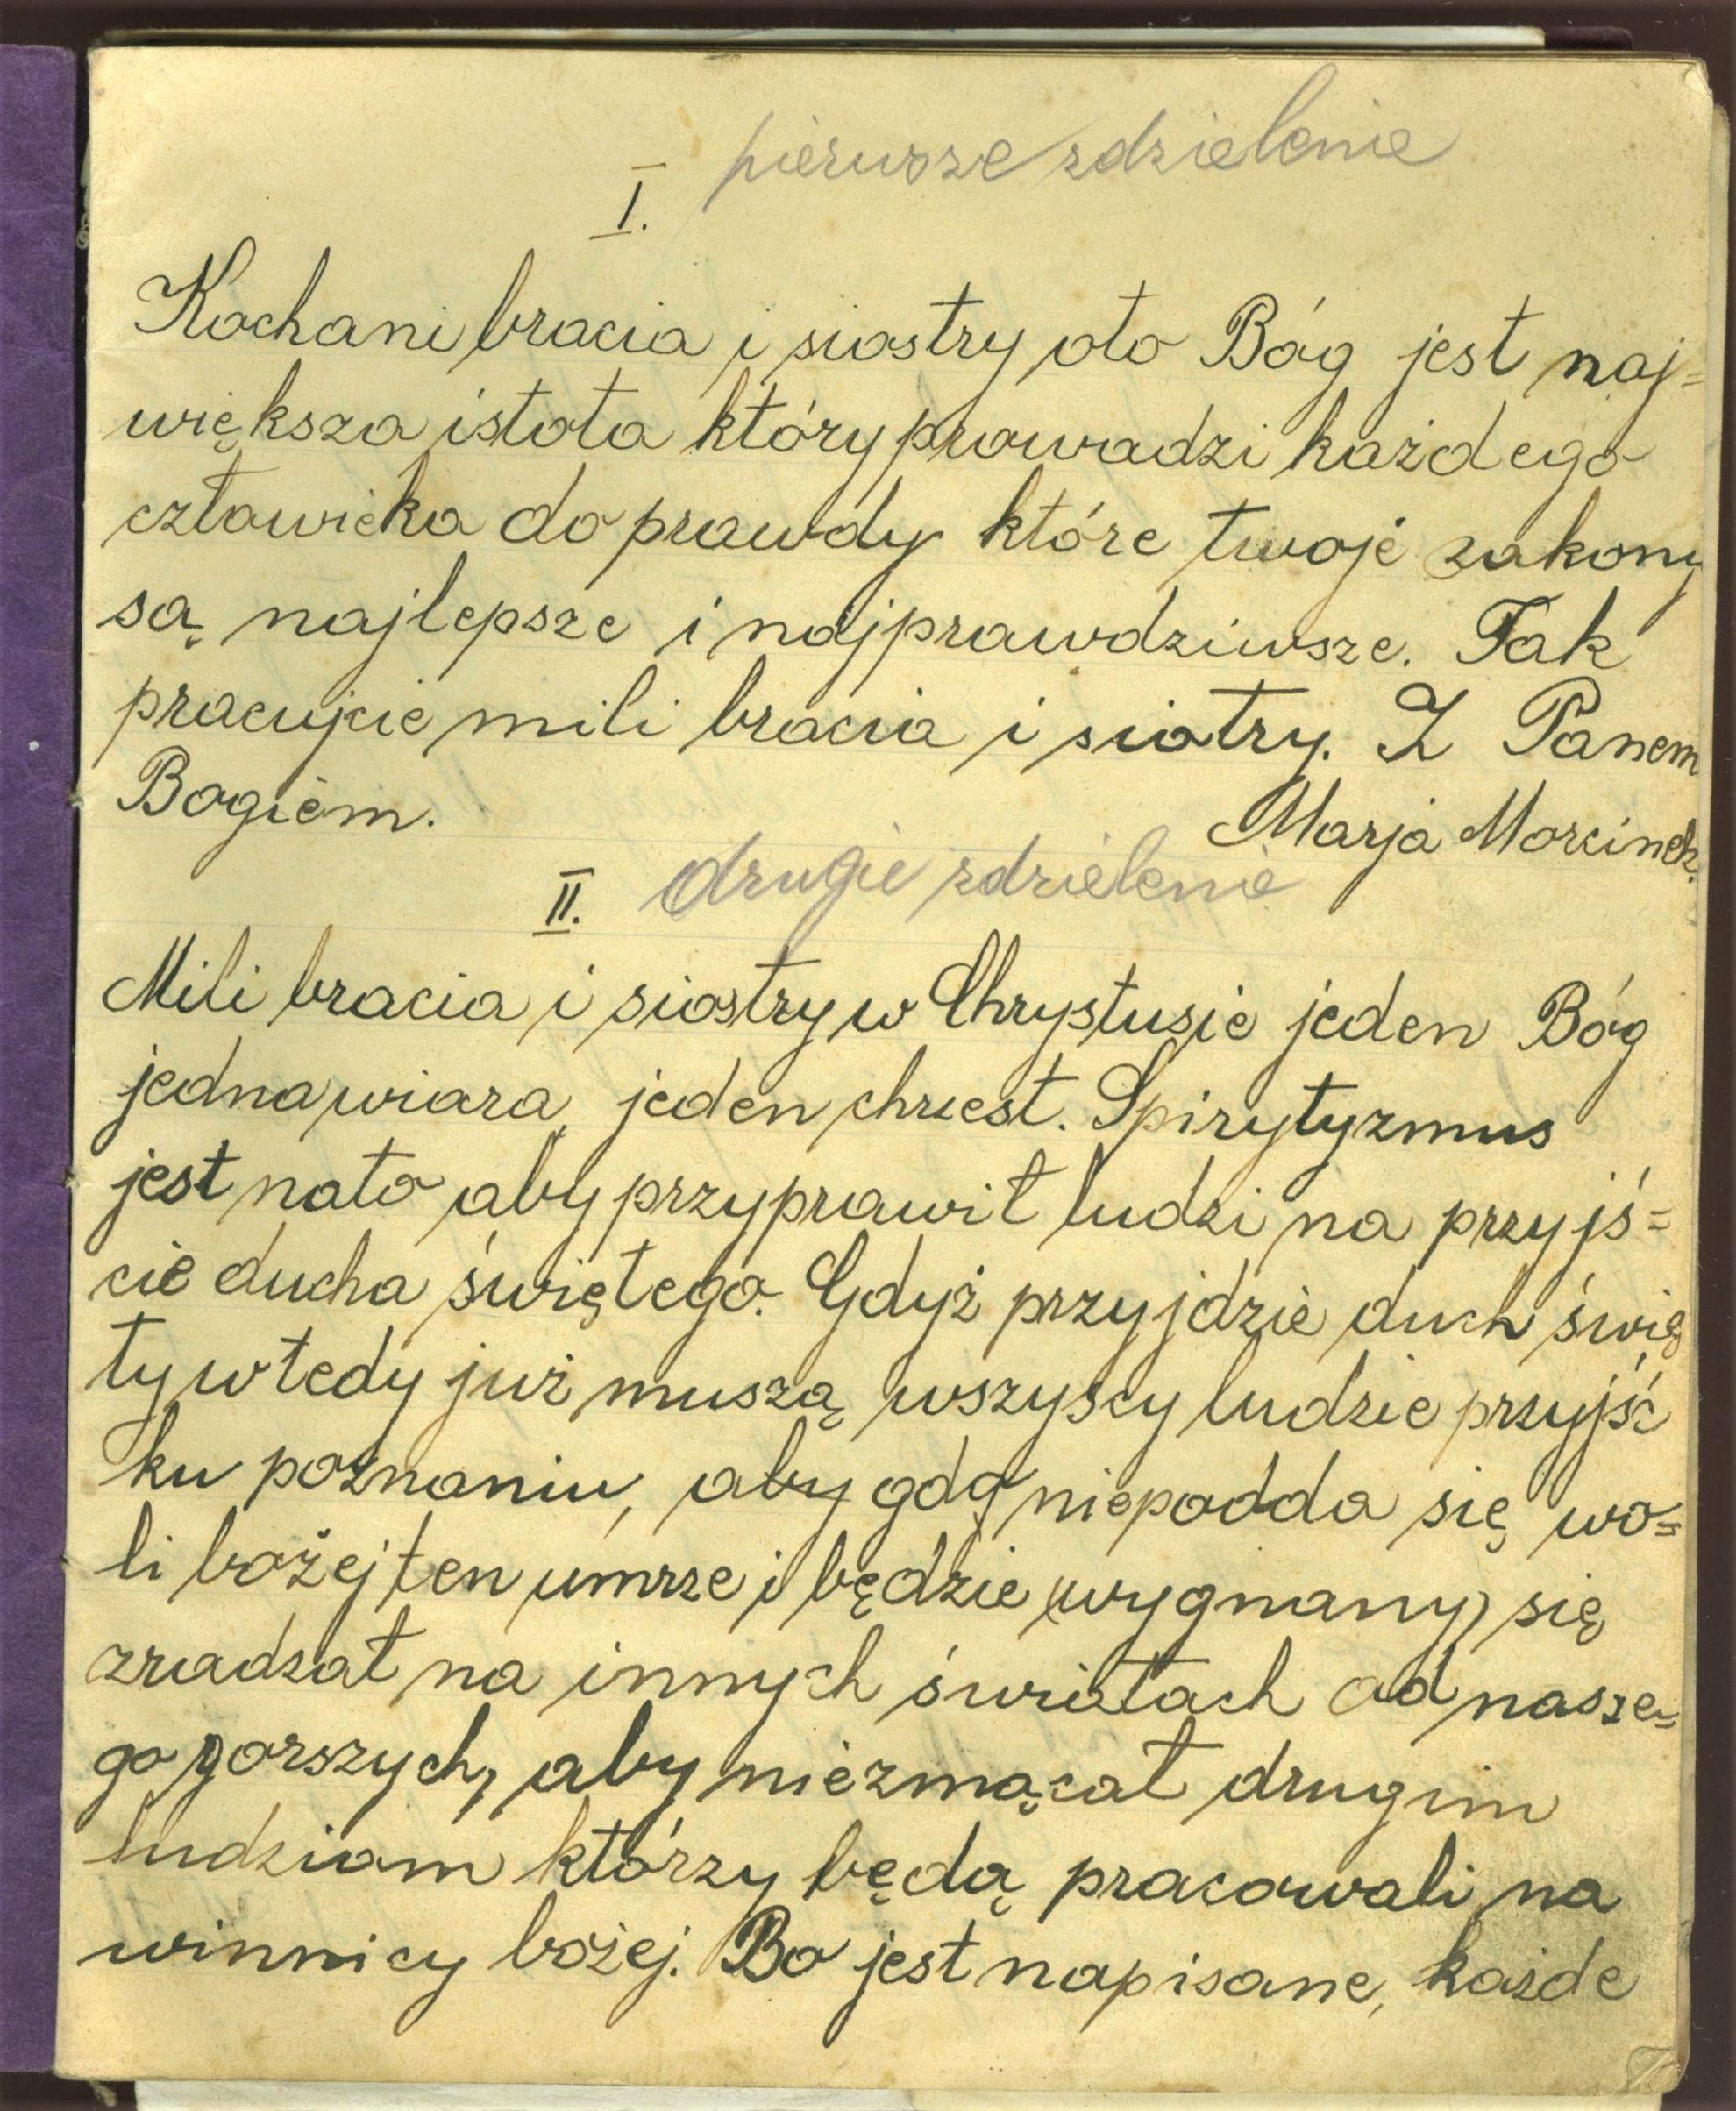 pierwsze zdzielenie
I.
Kochani bracia i siostry oto Bóg jest naj=
większa istota który prowadzi każdego
człowieka do prawdy które twoje zakony
są najlepsze i najprawdziwsze. Tak
pracujcie mili bracia i siotry. Z Panem
Bogiem.
Marja Morcinek.
II. drugie zdzielenie
Mili bracia i siostry w Chrystusie jeden Bóg
jedna wiara jeden chrzest. Spirytyzmus
jest nato aby przyprawił ludzi na przyjś=
cie ducha świętego. Gdyż przyjdzie duch świę
ty wtedy już muszą wszyscy ludzie przyjść
ku poznaniu, aby gdy niepodda się wo=
li bożej ten umrze i będzie (wygnany) się
zradzał na innych światach od nasze=
go gorszych, aby niezmącał drugim
ludziam którzy będą pracowali na
winnicy bożej. Bo jest napisane, każde